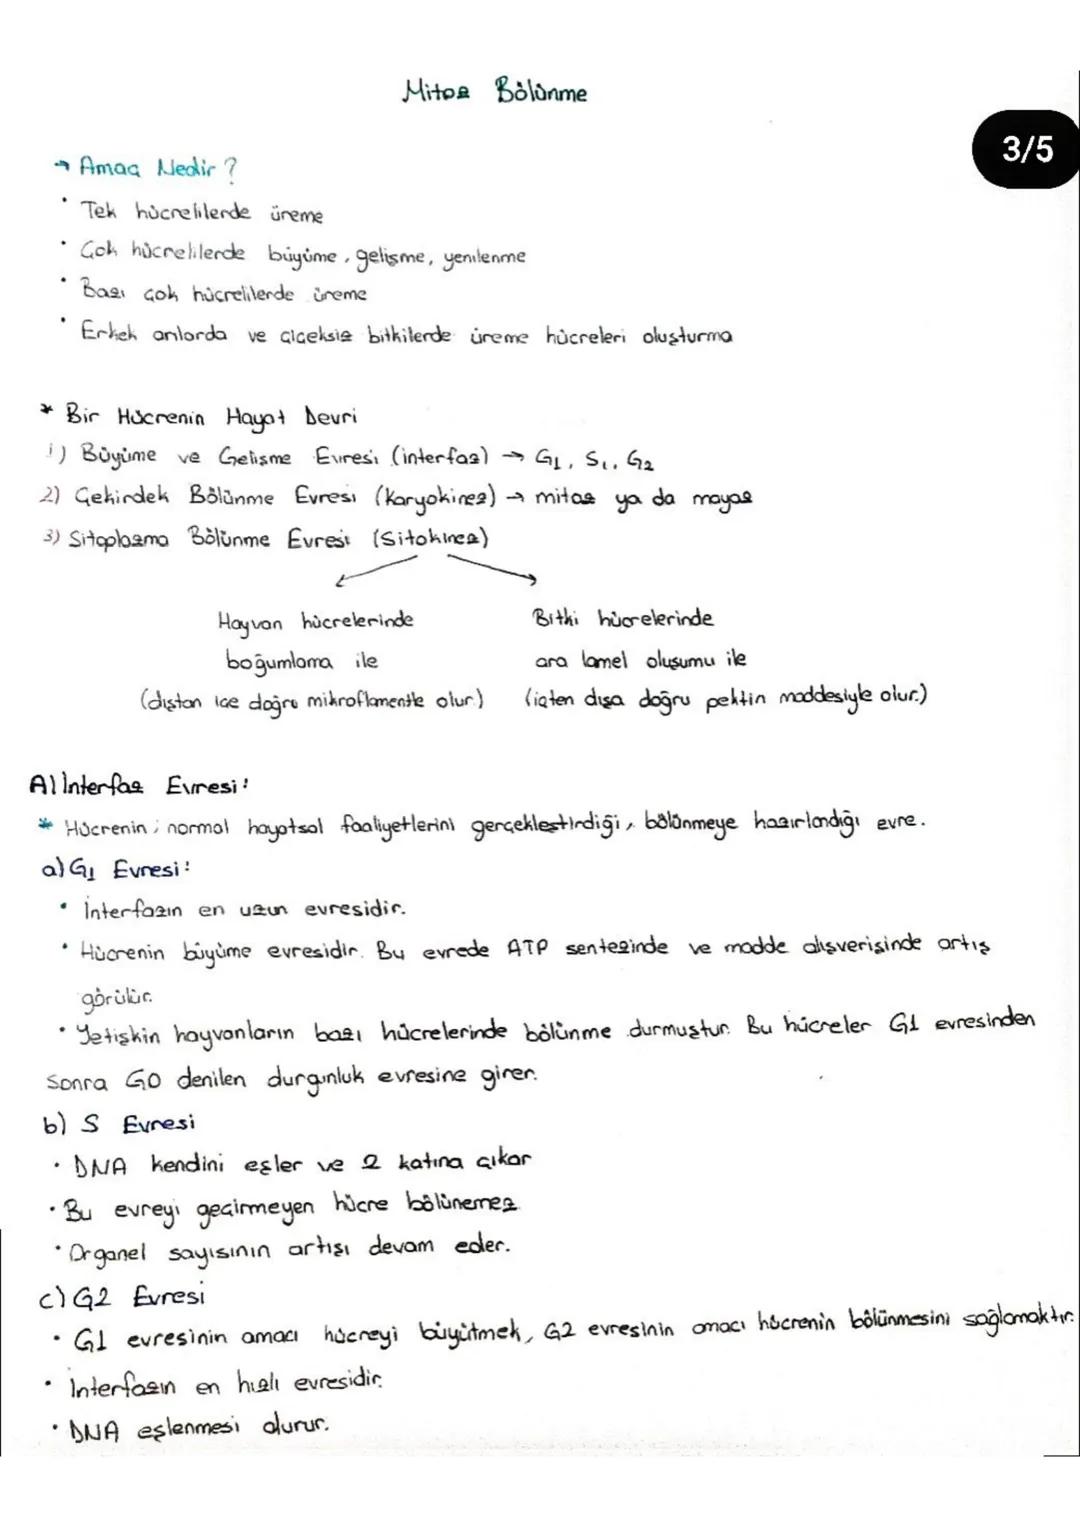 Mitoz Bölünme
3/5
→ Amaç Nedir ?
• Tek hücrelilerde üreme
• Çok hücrelilerde büyüme, gelişme, yenilenme
• Bazı çok hücrelilerde üreme
• Erkek arılarda ve çiçeksiz bitkilerde üreme hücreleri oluşturma
* Bir Hücrenin Hayat Devri
1) Büyüme ve Gelişme Evresi (interfaz) → G1, S1, G2
2) Çekirdek Bölünme Evresi (Karyokinez) → mitoz ya da mayoz
3) Sitoplazma Bölünme Evresi (Sitokinez)
Hayvan hücrelerinde Bitki hücrelerinde
boğumlama ile ara lamel oluşumu ile
(dıştan içe doğru mikroflamentle olur.) (içten dışa doğru pektin maddesiyle olur.)
A) İnterfaz Evresi:
* Hücrenin; normal hayatsal faaliyetlerini gerçekleştirdiği, bölünmeye hazırlandığı evre.
a) G1 Evresi:
• İnterfazın en uzun evresidir.
• Hücrenin büyüme evresidir. Bu evrede ATP sentezinde ve madde alışverişinde artış
görülür.
• Yetişkin hayvanların bazı hücrelerinde bölünme durmuştur. Bu hücreler G1 evresinden
sonra G0 denilen durgunluk evresine girer.
b) S Evresi
• DNA kendini eşler ve 2 katına çıkar
• Bu evreyi geçirmeyen hücre bölünemez.
• Organel sayısının artışı devam eder.
c) G2 Evresi
• G1 evresinin amacı hücreyi büyütmek, G2 evresinin amacı hücrenin bölünmesini sağlamaktır.
• İnterfazın en hızlı evresidir.
• DNA eşlenmesi durur.